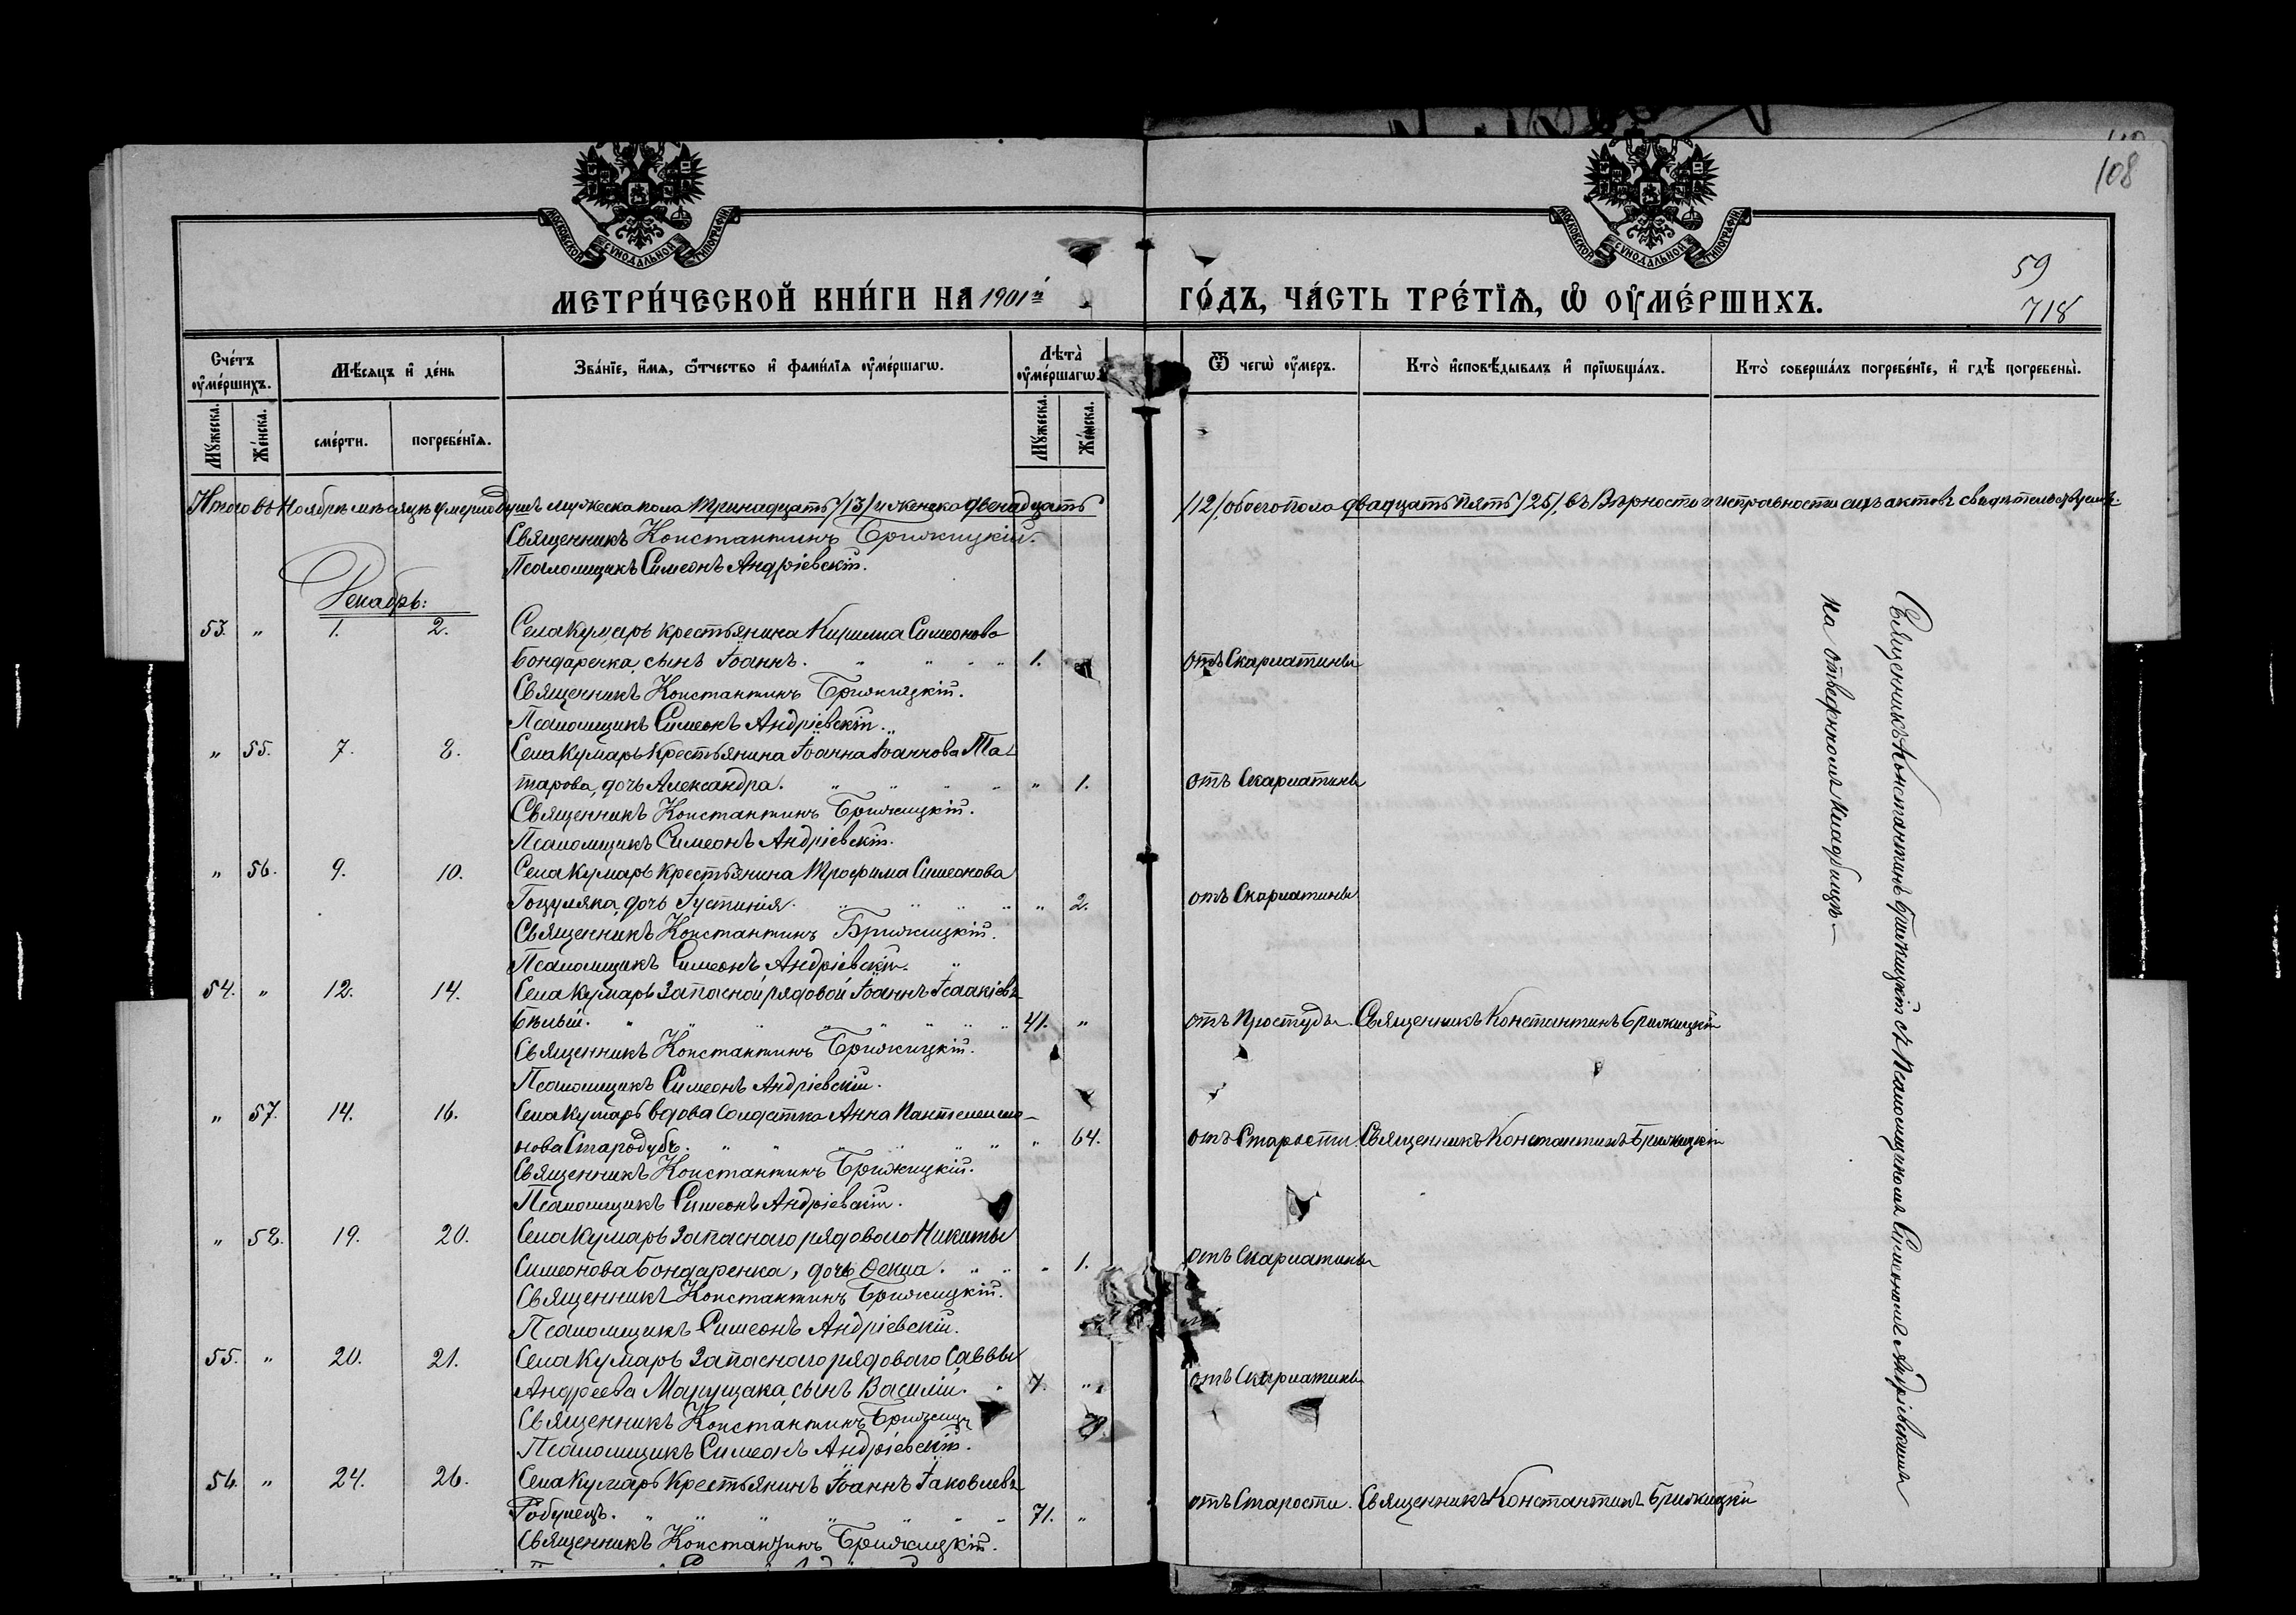 108
МОСКОВСКОЙ СѴНОДАЛЬНОЙ ТИПОГРАФІИ
МОСКОВСКОЙ СѴНОДАЛЬНОЙ ТИПОГРАФІИ
59
718
МЕТРИ́ЧЕСКОЙ КНИ́ГИ НА 1901й ГО́ДЪ, ЧА́СТЬ ТРЕ́ТІѦ, Ѡ҆ ОУ҆МЕ́РШИХЪ.
Сче́тъ оу҆ме́ршихъ.
Мꙋ́жеска.
Же́нска.
Мѣ́сяцъ и҆ де́нь
сме́рти.
погребе́нїѧ.
Зва́нїе, и҆́мѧ, ѻ҆́тчество и҆ фами́лїѧ оу҆ме́ршагѡ.
Лѣта̀ оу҆ме́ршагѡ.
Мꙋ́жеска.
Же́нска.
Ѿ чегѡ̀ оу҆́меръ.
Кто̀ и҆сповѣ́дывалъ и҆ прїѡбща́лъ.
Кто̀ соверша́лъ погребе́нїе, и҆ гдѣ̀ погребены̀.
Итого въ Ноябрѣ мѣсяцѣ умерло душъ мужеска пола тринадцать /13/ и женска двенадцать /12/, обоего пола двадцать пять /25/, въ вѣрности и исправности сихъ актовъ свидѣтельствуемъ.
Священникъ Константинъ Брижицкій.
Псаломщикъ Симеонъ Андріевскій.
Декабрь:
53. " 1. 2. Села Кумаръ крестьянина Кирилла Симеонова
Бондаренка, сынъ Іоаннъ. " " " " 1. отъ Скарлатины
Священникъ Константинъ Брижицкій.
Псаломщикъ Симеонъ Андріевскій.
" 55. 7. 8. Села Кумаръ крестьянина Іоанна Іоаннова Та-
тарова, дочь Александра. " " " " " 1. отъ Скарлатины
Священникъ Константинъ Брижицкій.
Псаломщикъ Симеонъ Андріевскій.
" 56. 9. 10. Села Кумаръ крестьянина Трофима Симеонова
Гоцуляка, дочь Іустинія. " " " " " 2. отъ Скарлатины
Священникъ Константинъ Брижицкій.
Псаломщикъ Симеонъ Андріевскій.
54. " 12. 14. Села Кумаръ запасной рядовой Іоаннъ Ісаакіевъ
Бѣлый. " " " " " " " 41. " отъ Простуды. Священникъ Константинъ Брижицкій
Священникъ Константинъ Брижицкій.
Псаломщикъ Симеонъ Андріевскій.
" 57. 14. 16. Села Кумаръ вдова солдатка Анна Пантелеимо-
нова Стародубъ. " " " " " " " 64. отъ Старости Священникъ Константинъ Брижицкій
Священникъ Константинъ Брижицкій.
Псаломщикъ Симеонъ Андріевскій.
" 58. 19. 20. Села Кумаръ запаснаго рядового Никиты
Симеонова Бондаренка, дочь Ѳекла. " " " 1. отъ Скарлатины
Священникъ Константинъ Брижицкій.
Псаломщикъ Симеонъ Андріевскій.
55. " 20. 21. Села Кумаръ запаснаго рядоваго Саввы
Андреева Марущака, сынъ Василій. " " отъ Скарлатины
Священникъ Константинъ
Псаломщикъ Симеонъ Андріевскій.
56. " 24. 26. Села Кумаръ крестьянинъ Іоаннъ Іаковлевъ
Робулецъ. " " " " " " " 71. " отъ Старости. Священникъ Константинъ Брижицкій
Священникъ Константинъ Брижицкій.
Священникъ Константинъ Брижицкій съ Псаломщикомъ Симеономъ Андріевскимъ
на отведенномъ кладбищѣ